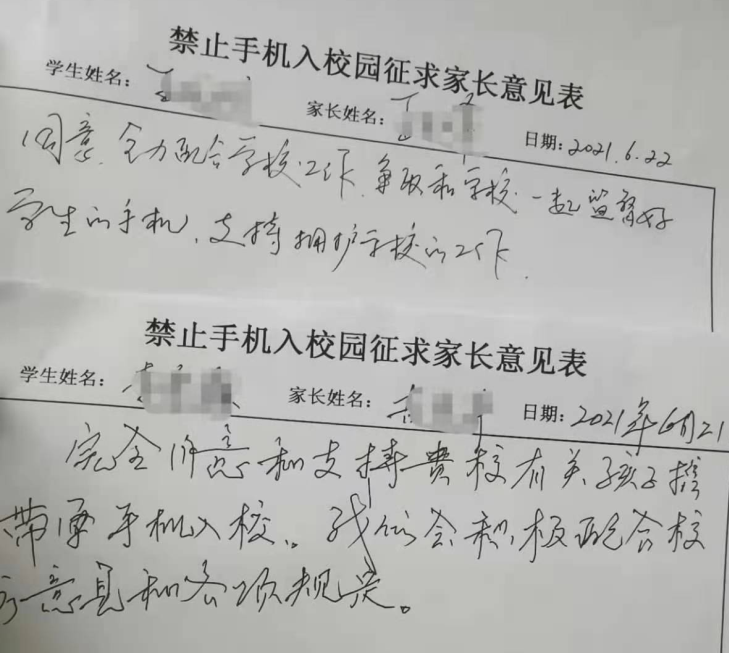 禁止手机入校园征求家长意见表
学生姓名： 家长姓名： 日期：2021.6.22
同意，全力配合学校工作，争取和学校一起监督好
学生的手机，支持拥护学校的工作.
禁止手机入校园征求家长意见表
学生姓名： 家长姓名： 日期：2021年6月21
完全同意和支持贵校有关孩子携
带手机入校。我们会积极配合校
方意见和各项规定。